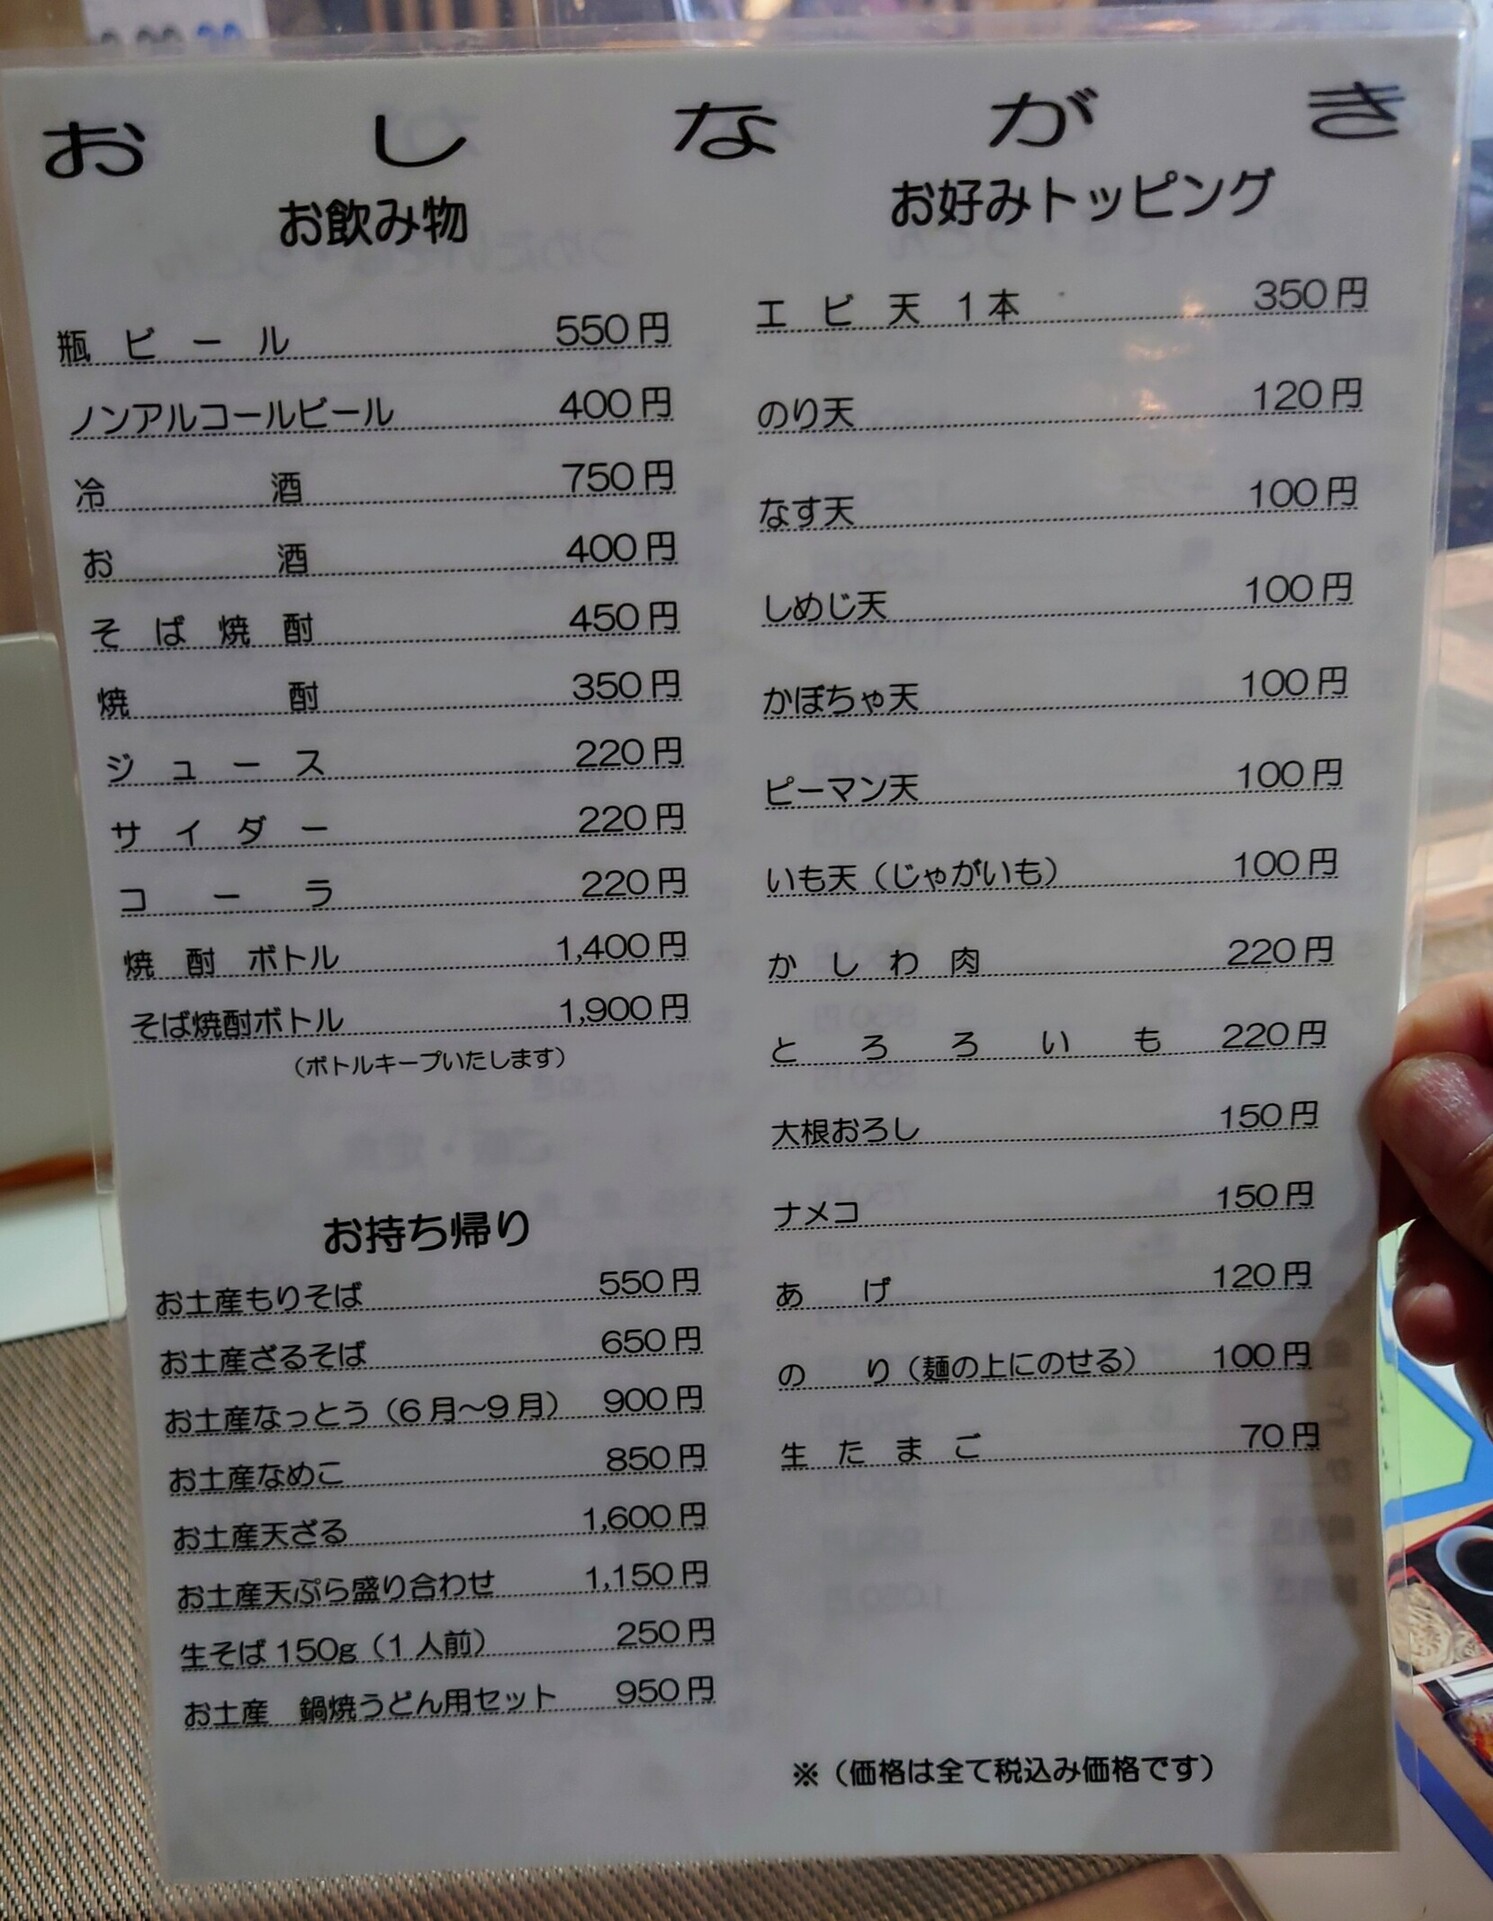 おしながき
お飲み物
瓶ビール 550円
ノンアルコールビール 400円
冷酒 750円
お酒 400円
そば焼酎 450円
焼酎 350円
ジュース 220円
サイダー 220円
コーラ 220円
焼酎ボトル 1,400円
そば焼酎ボトル 1,900円
（ボトルキープいたします）
お持ち帰り
お土産もりそば 550円
お土産ざるそば 650円
お土産なっとう（6月～9月） 900円
お土産なめこ 850円
お土産天ざる 1,600円
お土産天ぷら盛り合わせ 1,150円
生そば150g（1人前） 250円
お土産 鍋焼うどん用セット 950円
お好みトッピング
エビ天 1本 350円
のり天 120円
なす天 100円
しめじ天 100円
かぼちゃ天 100円
ピーマン天 100円
いも天（じゃがいも） 100円
かしわ肉 220円
とろろいも 220円
大根おろし 150円
ナメコ 150円
あげ 120円
のり（麺の上にのせる） 100円
生たまご 70円
※（価格は全て税込み価格です）